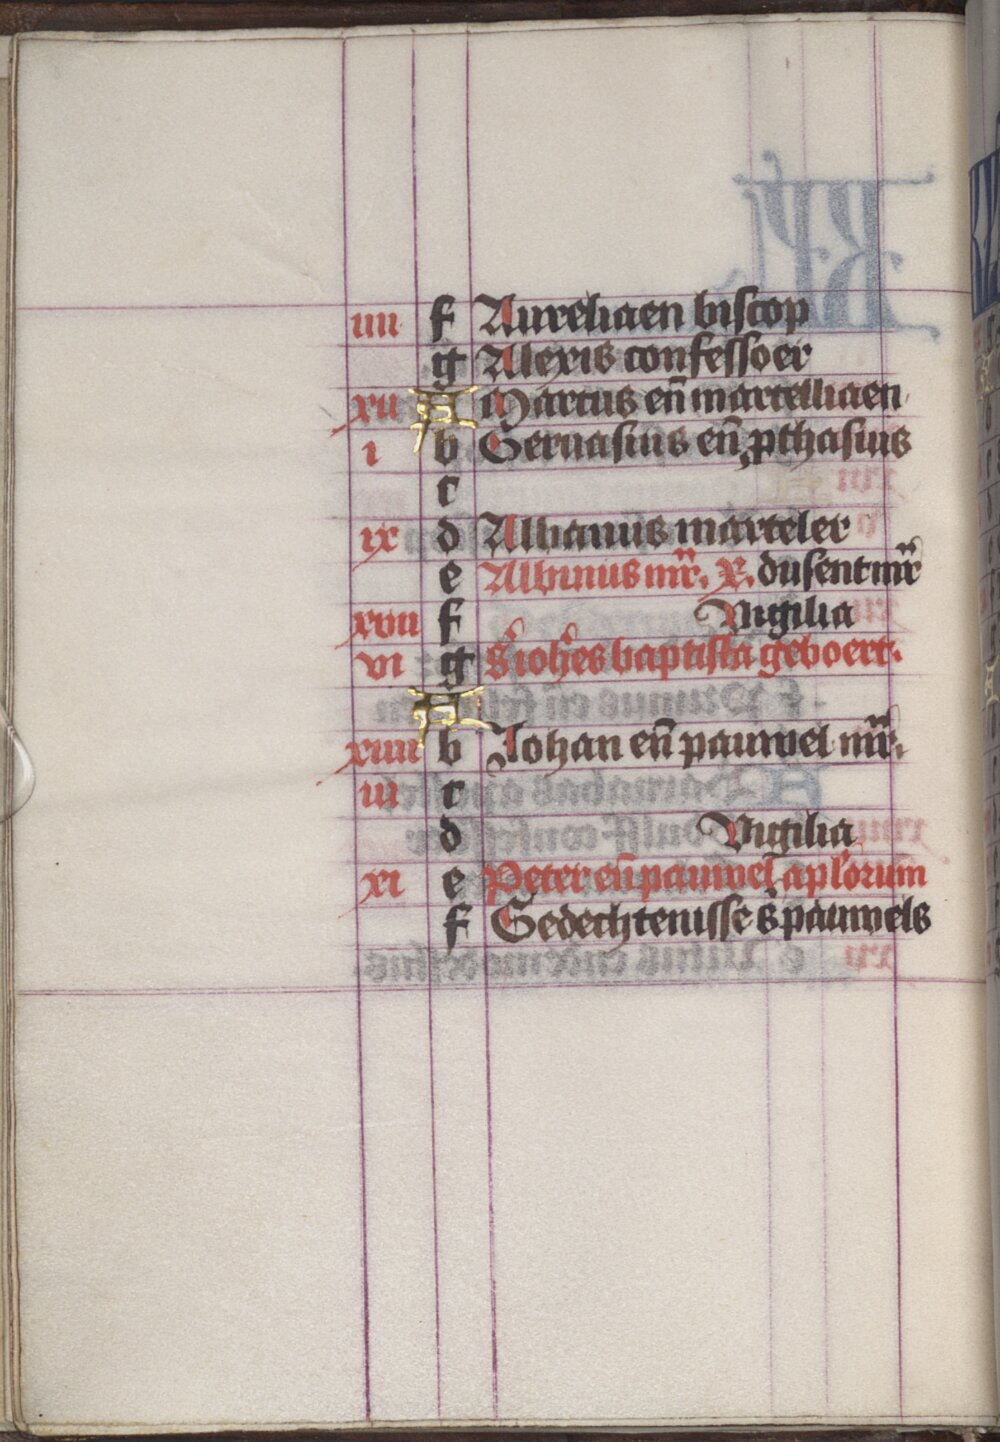 iiii f Aureliaen biscop
g Alexis confessoer
xii A Marcus en̄ marcelliaen
i b Geruasius en̄ ꝓthasius
c
ix d Albanus marteler
e Albinus mr̄. x. dusent mr̄
xvii f Vigilia
vi g S iohēs baptista geboert.
A
xiiii b Johan en̄ pauwel mr̄.
iii c
d Vigilia
xi e Peter en̄ pauwel aplorum
f Gedechtenisse s pauwels